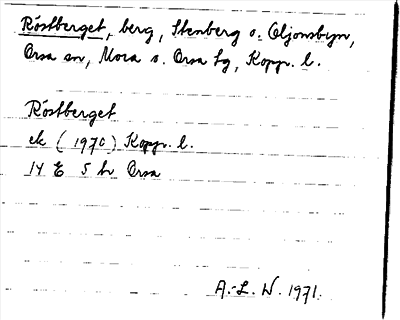 Röstberget, berg, Stenberg o. Oljonsbyn,
Orsa sn, Mora o. Orsa tg, Kopp. l.
Röstberget
ek (1970) Kopp. l.
14 E 5 h Orsa
A.-L. W. 1971.